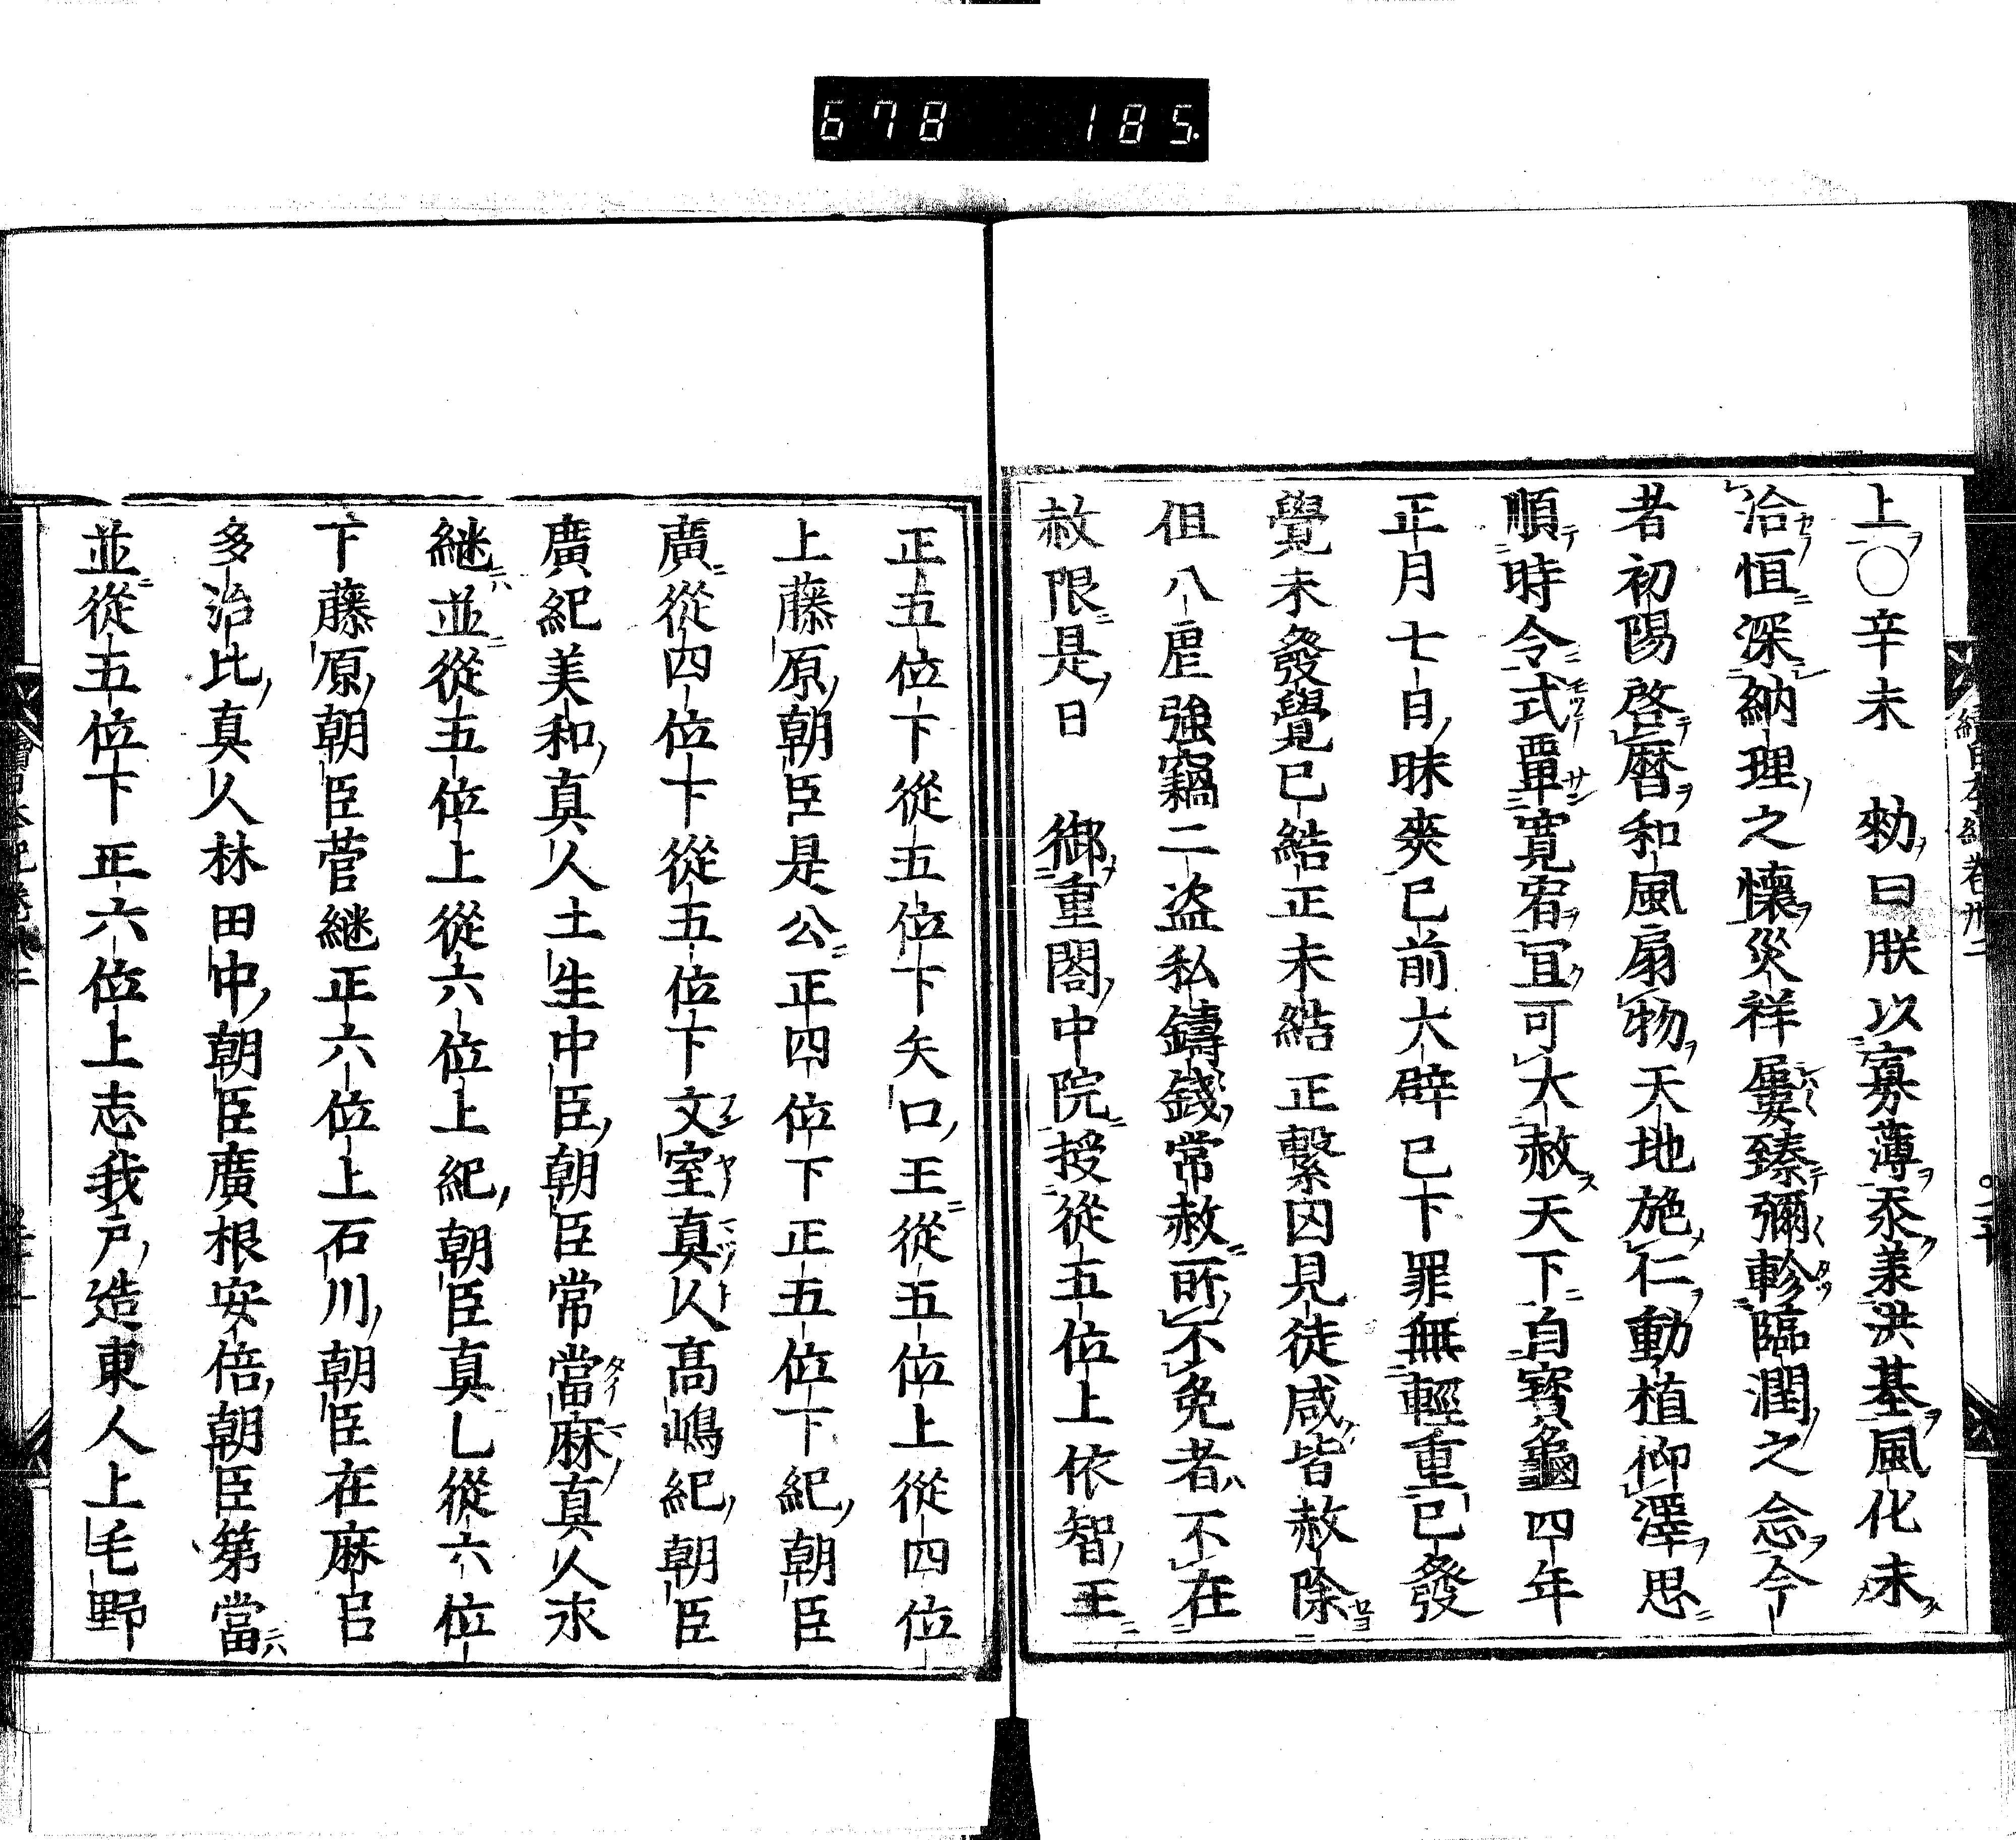 678 185.
上〇辛未 勑曰朕以寡薄忝兼洪基風化未
洽恒深納隍之懷災祥屢臻彌軫臨淵之念今
者初陽啓暦和風扇物天地施仁動植仰澤思
順時令式覃寛宥冝可大赦天下自寶龜四年
正月七日昧爽已前大辟已下罪無輕重已發
覺未發覺已結正未結正繋囚見徒咸皆赦除
但八虐強竊二盗私鑄錢常赦所不免者不在
赦限是日 御重閣中院授從五位上依智王
正五位下從五位下矢口王從五位上從四位
上藤原朝臣是公正四位下正五位下紀朝臣
廣從四位下從五位下文室真人髙嶋紀朝臣
廣紀美和真人土生中臣朝臣常當麻真人永
継並從五位上從六位上紀朝臣真乚從六位
下藤原朝臣菅継正六位上石川朝臣在麻呂
多治比真人林田中朝臣廣根安倍朝臣第當
並從五位下正六位上志我戸造東人上毛野